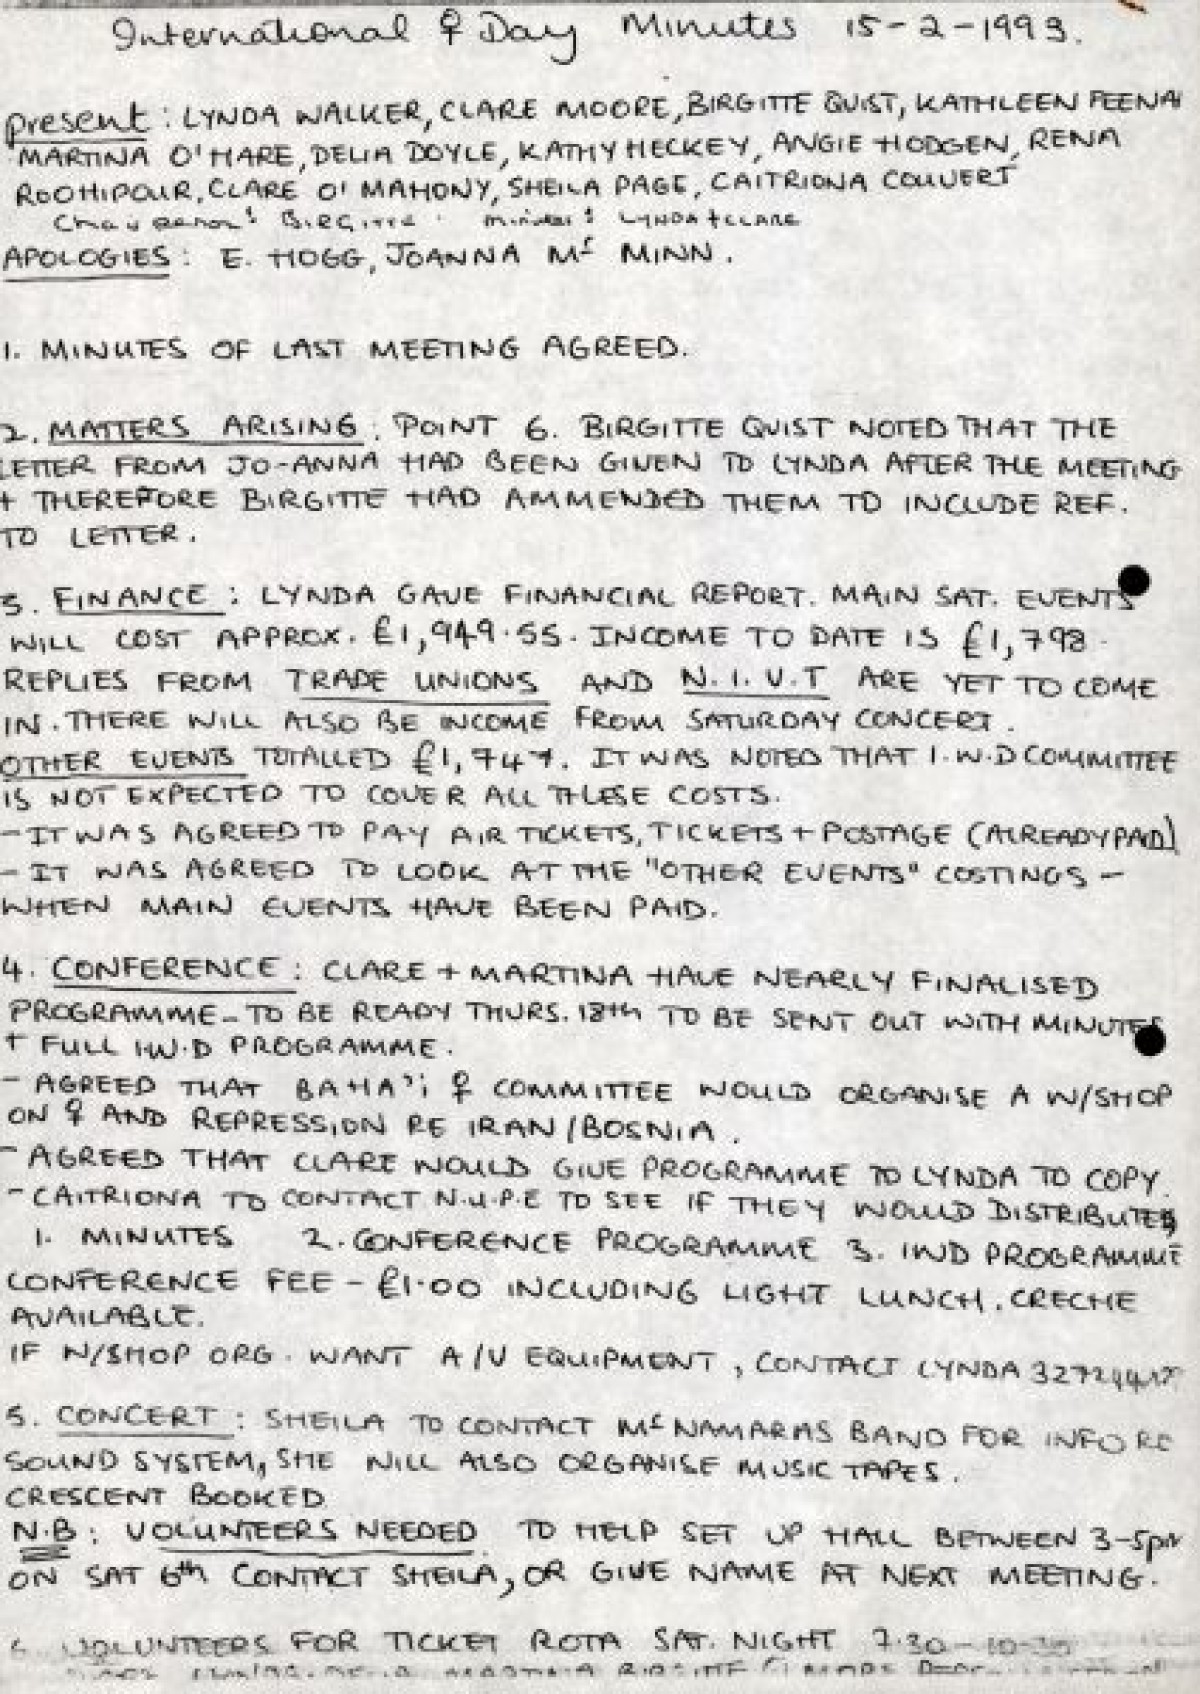 International ♀ Day Minutes 15-2-1993.
present: LYNDA WALKER, CLARE MOORE, BIRGITTE QUIST, KATHLEEN FEENA
MARTINA O'HARE, DELIA DOYLE, KATHY HECKEY, ANGIE HODGEN, RENA
ROOHIPOUR, CLARE O'MAHONY, SHEILA PAGE, CAITRIONA COUVERT
BIRGITTE. LYNDA + CLARE
APOLOGIES: E. HOGG, JOANNA Mc MINN.
1. MINUTES OF LAST MEETING AGREED.
2. MATTERS ARISING: POINT 6. BIRGITTE QUIST NOTED THAT THE
LETTER FROM JO-ANNA HAD BEEN GIVEN TO LYNDA AFTER THE MEETING
+ THEREFORE BIRGITTE HAD AMMENDED THEM TO INCLUDE REF.
TO LETTER.
3. FINANCE: LYNDA GAVE FINANCIAL REPORT. MAIN SAT. EVENTS
WILL COST APPROX. £1,949.55. INCOME TO DATE IS £1,798.
REPLIES FROM TRADE UNIONS AND N.I.V.T ARE YET TO COME
IN. THERE WILL ALSO BE INCOME FROM SATURDAY CONCERT.
OTHER EVENTS TOTALLED £1,747. IT WAS NOTED THAT I.W.D COMMITTEE
IS NOT EXPECTED TO COVER ALL THESE COSTS.
- IT WAS AGREED TO PAY AIR TICKETS, TICKETS + POSTAGE (ALREADY PAID)
- IT WAS AGREED TO LOOK AT THE "OTHER EVENTS" COSTINGS -
WHEN MAIN EVENTS HAVE BEEN PAID.
4. CONFERENCE: CLARE + MARTINA HAVE NEARLY FINALISED
PROGRAMME - TO BE READY THURS. 18th TO BE SENT OUT WITH MINUTES
+ FULL I.W.D PROGRAMME.
- AGREED THAT BAHA'i ♀ COMMITTEE WOULD ORGANISE A W/SHOP
ON ♀ AND REPRESSION RE IRAN/BOSNIA.
- AGREED THAT CLARE WOULD GIVE PROGRAMME TO LYNDA TO COPY.
- CAITRIONA TO CONTACT N.U.P.E TO SEE IF THEY WOULD DISTRIBUTE
1. MINUTES 2. CONFERENCE PROGRAMME 3. IWD PROGRAMME
CONFERENCE FEE - £1.00 INCLUDING LIGHT LUNCH. CRECHE
AVAILABLE.
IF W/SHOP ORG. WANT A/V EQUIPMENT, CONTACT LYNDA
5. CONCERT: SHEILA TO CONTACT Mc NAMARAS BAND FOR INFO RE
SOUND SYSTEM, SHE WILL ALSO ORGANISE MUSIC TAPES.
CRESCENT BOOKED
N.B: VOLUNTEERS NEEDED TO HELP SET UP HALL BETWEEN 3-5pm
ON SAT 6th CONTACT SHEILA, OR GIVE NAME AT NEXT MEETING.
6. VOLUNTEERS FOR TICKET ROTA SAT. NIGHT 7.30-10-30
MARTINA BIRGITTE